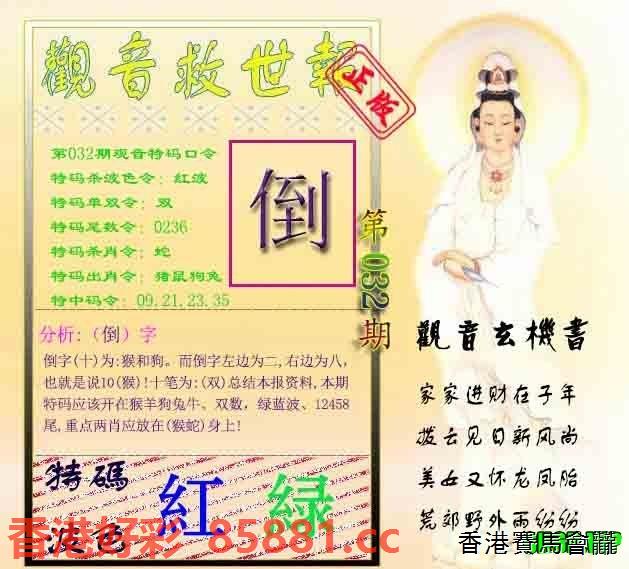 觀音救世報
正版
第032期观音特码口令
特码杀波色令：红波
特码单双令：双
特码尾数令：0236
特码杀肖令：蛇
特码出肖令：猪鼠狗兔
特中码令：09.21.23.35
倒
第032期
分析:（倒）字
倒字(十)为:猴和狗。而倒字左边为二,右边为八,
也就是说10(猴)!十笔为:(双)总结本报资料,本期
特码应该开在猴羊狗兔牛、双数，绿蓝波、12458
尾,重点两肖应放在(猴蛇)身上!
特碼
波色
紅 绿
香港好彩 85881.cc
觀音玄機書
家家进财在子年
拨云见日新风尚
美女又怀龙凤胎
荒郊野外雨纷纷
香港賽馬會